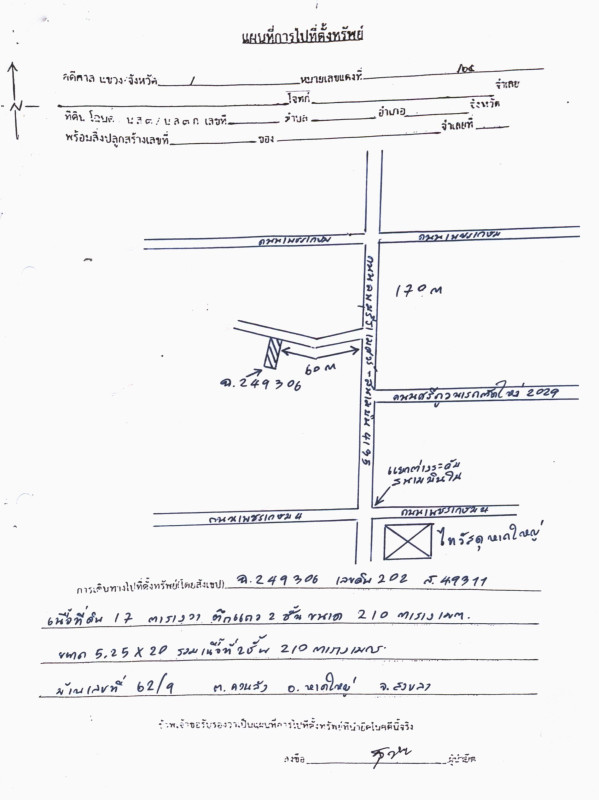 แผนที่การไปที่ตั้งทรัพย์
คดีศาล แขวง/จังหวัด / หมายเลขแดงที่ /๒๕
โจทก์ จำเลย
ที่ดิน โฉนด น.ส.๓/น.ส.๓ ก. เลขที่ ตำบล อำเภอ จังหวัด
พร้อมสิ่งปลูกสร้างเลขที่ ของ จำเลยที่
N
ถนนเพชรเกษม ถนนเพชรเกษม
170 m
60 m
ฉ.249306
4135
2029
แยกต่างระดับ
สนามบินใน
ถนนเพชรเกษม 4 ถนนเพชรเกษม 4
ไทวัสดุ หาดใหญ่
การเดินทางไปที่ตั้งทรัพย์(โดยสังเขป) ฉ.249306 เลขดิน 202 ส.49311
เนื้อที่ดิน 17 ตารางวา ตึกแถว 2 ชั้น ขนาด 210 ตารางเมตร.
ขนาด 5.25 X 20 รวมเนื้อที่ 2 ชั้น 210 ตารางเมตร.
บ้านเลขที่ 62/9 ต.ควนลัง อ.หาดใหญ่ จ.สงขลา
ข้าพเจ้าขอรับรองว่าเป็นแผนที่การไปที่ตั้งทรัพย์ที่นำยึดในคดีนี้จริง
ลงชื่อ ผู้นำยึด